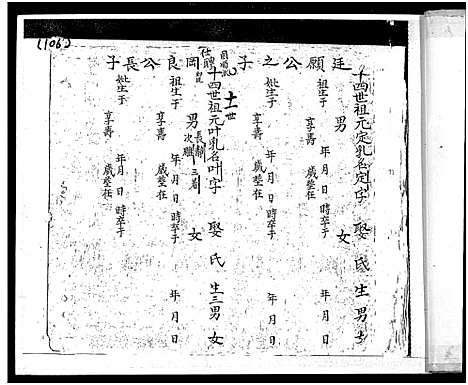 (106)
廷願公之子
十四世祖元定乳名定字 娶 氏 生 男 女
祖生于 年 月 日 時卒于 年 月 日
享壽 歲塟在
男 女
妣生于 年 月 日 時卒于 年 月 日
享壽 歲塟在
十四世祖元叶乳名叶字 娶 氏 生三男 女
岡良公長子
祖生于 年 月 日 時卒于 年 月 日
享壽 歲塟在
男 長 次 三 女
妣生于 年 月 日 時卒于
享壽 歲塟在